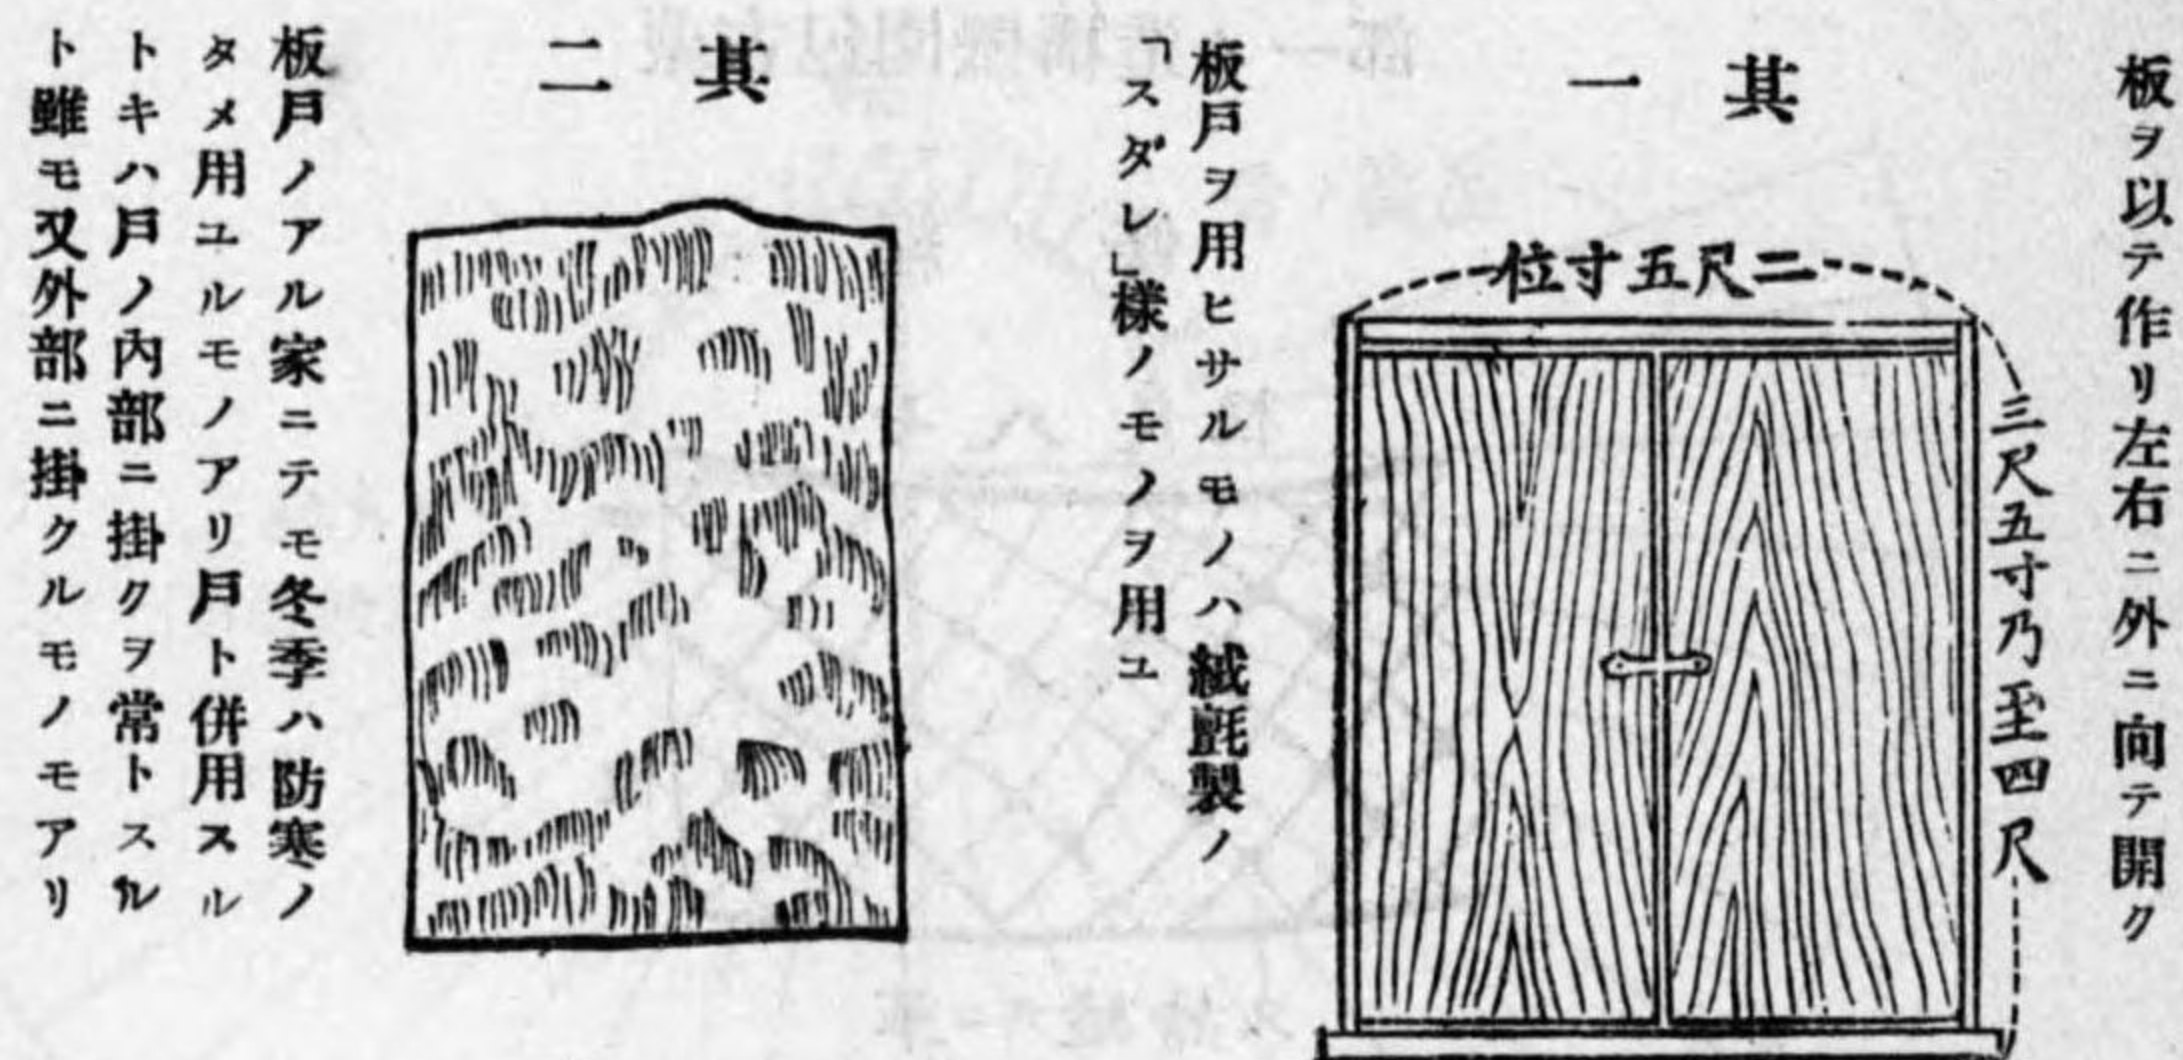 板ヲ以テ作リ左右ニ外ニ向テ開ク
其一
二尺五寸位
三尺五寸乃至四尺
板戸ヲ用ヒサルモノハ絨氈製ノ
「スダレ」樣ノモノヲ用ユ
其二
板戸ノアル家ニテモ冬季ハ防寒ノ
タメ用ユルモノアリ戸ト併用スル
トキハ戸ノ內部ニ掛クヲ常トスル
ト雖モ又外部ニ掛クルモノモアリ